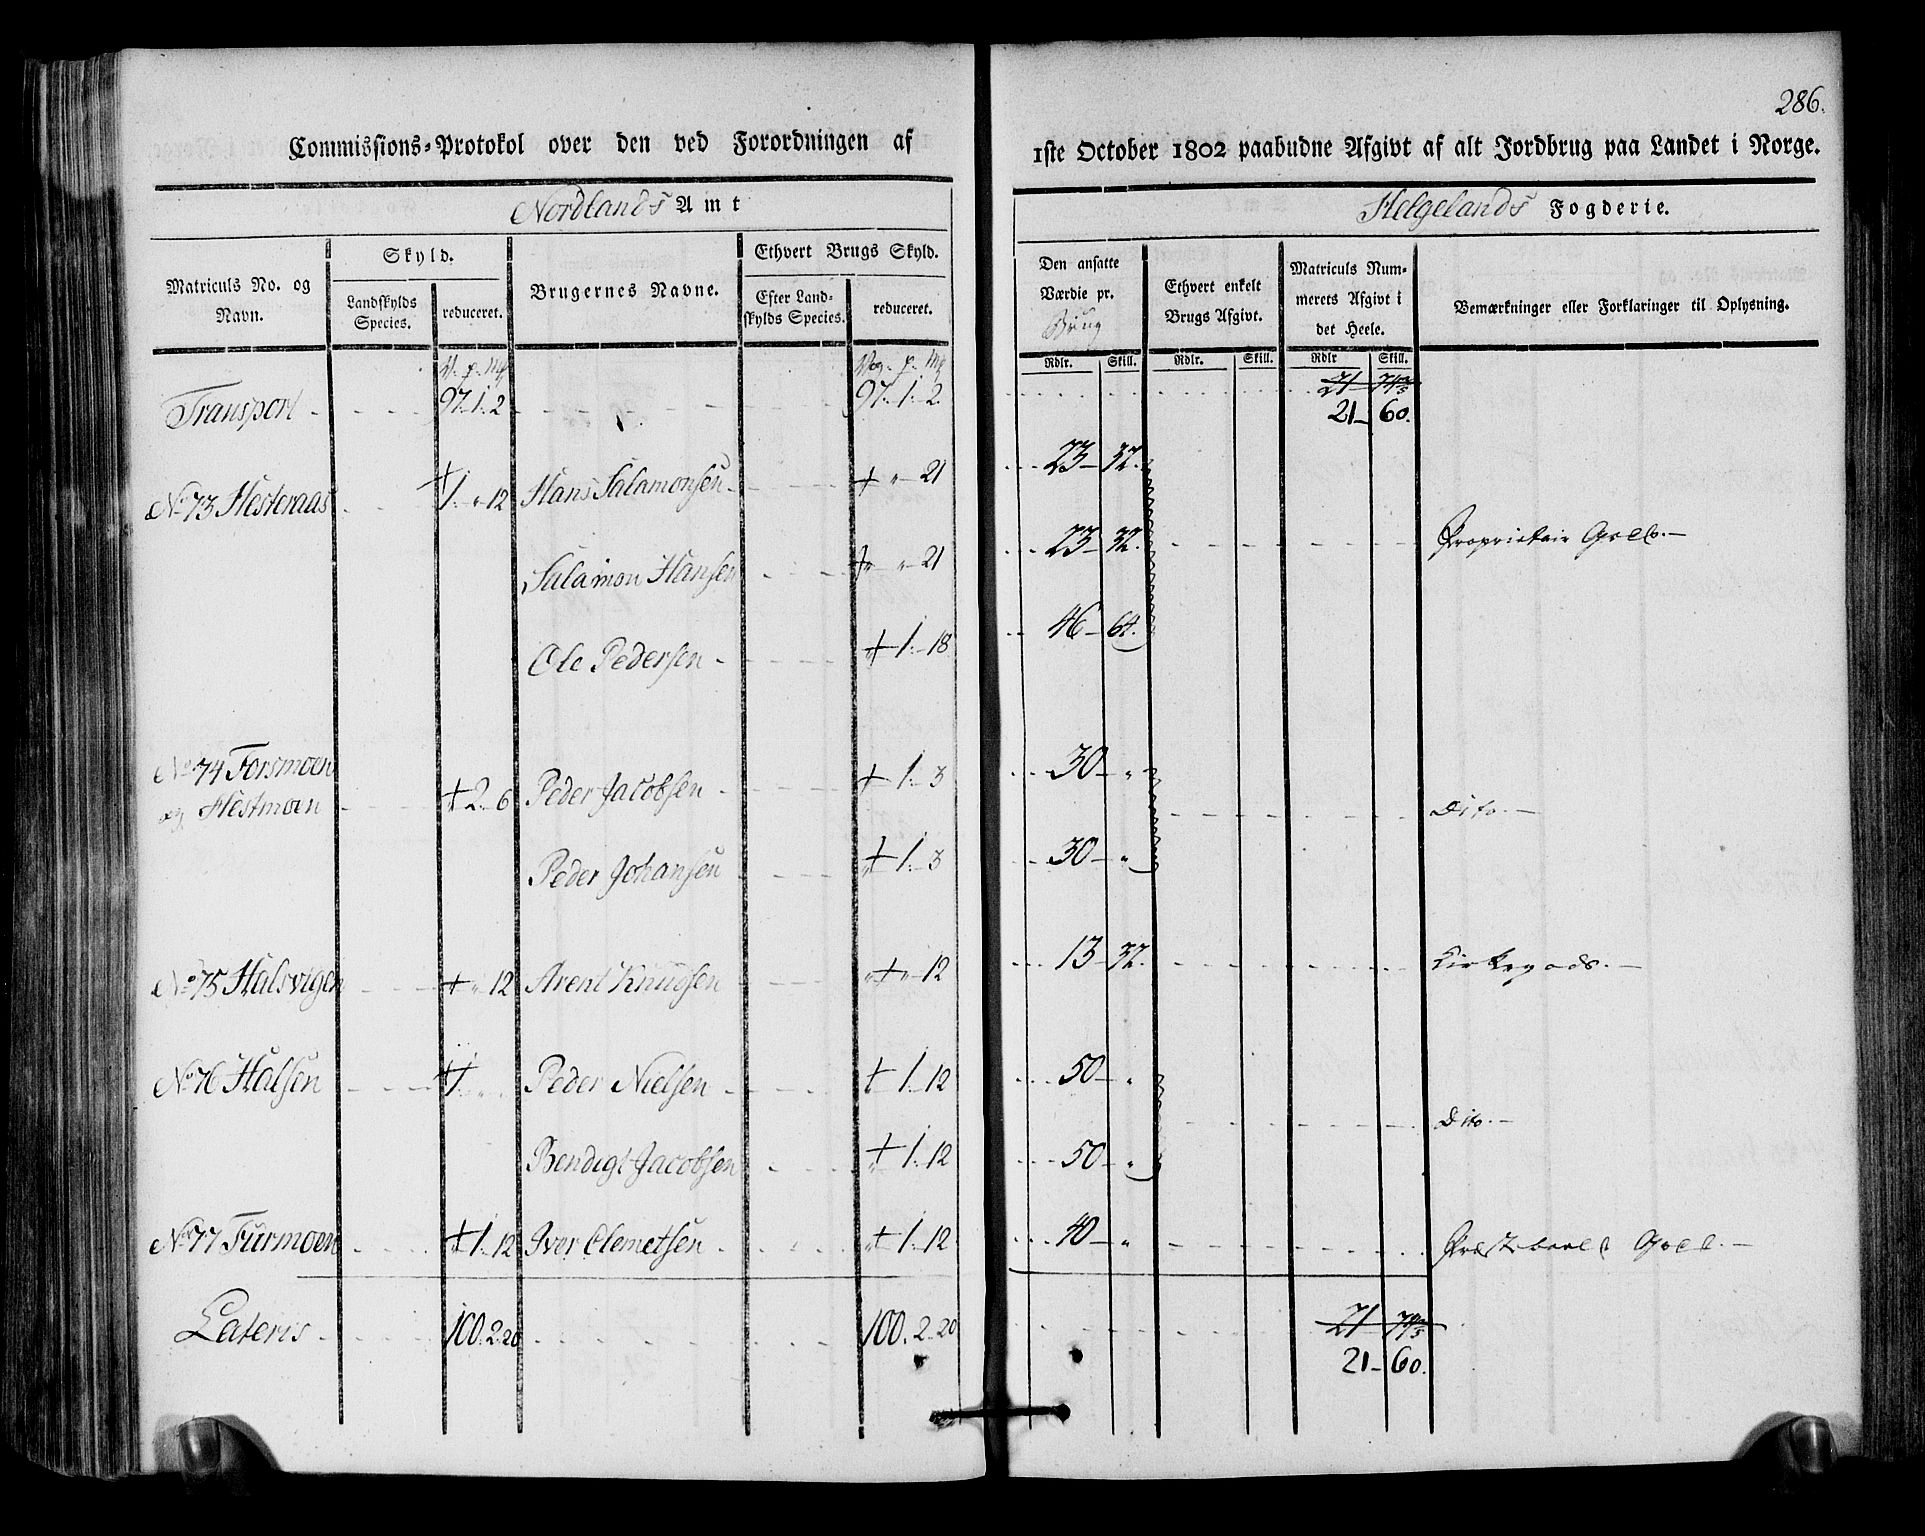 286.
Commissions-Protokol over den ved Forordningen af 1ste October 1802 paabudne Afgivt af alt Jordbrug paa Landet i Norge.
Nordlands Amt
Helgelands Fogderie.
Matriculs No. og Navn.
Skyld.
Landskylds Species.
reduceret.
Brugernes Navne.
Ethvert Brugs Skyld.
Efter Landskylds Species.
reduceret.
Den ansatte Værdie pr. Brug
Rdlr. Skill.
Ethvert enkelt Brugs Afgivt.
Rdlr. Skill.
Matriculs Nummerets Afgivt i det Heele.
Rdlr Skill.
Bemærkninger eller Forklaringer til Oplysning.
Transport 97. 1. 2 97. 1. 2. 21 60.
No 73 Hesteraas 1. „ 12 Hans Salamonsen „ 21 23 32.
Salamon Hansen „ „ 21 23 32. Proprietair Godts.
Ole Pedersen 1. 18 46 64.
No 74 Forsmoen
og Hestmoen 2. 6 Peder Jacobsen 1. 3 30 „ Dito.
Peder Johansen 1. 3 30 „
No 75 Halsvigen „ 12 Arent Knudsen „ 12 13 32. Kirkegods.
No 76 Halsen Peder Nielsen 1. 12 50 „
Dito.
Bendigt Jacobsen 1. 12 50 „
No 77 Furmoen 1. 12 Iver Clemetsen 1. 12 40 „
Lateris 100. 2. 20 100. 2. 20 21 60.